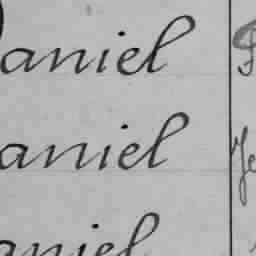 aniel
aniel
aniel